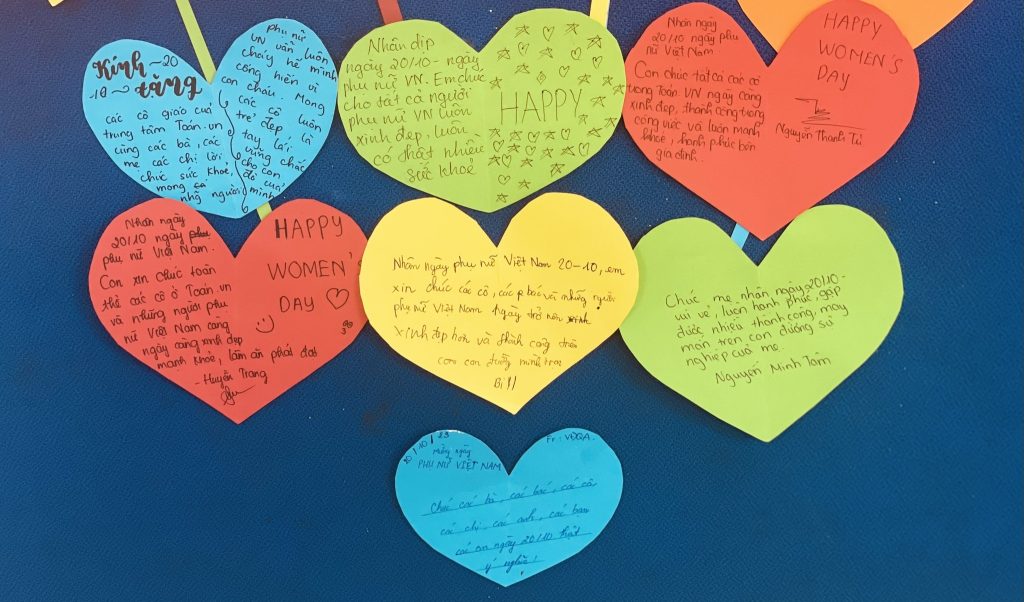 Kính tặng
20
10
các cô giáo của
trung tâm Toán.vn
cùng các bà, các
mẹ các chị lời
chúc sức khoẻ,
mong
những người
phụ nữ
VN vẫn luôn
cháy hế mình
cống hiến vì
con cháu. Mong
các cô luôn
trẻ đẹp, là
tay lái
vững chắc
cho con
đò của
mình
Nhân dịp
ngày 20/10 - ngày
Phụ nữ VN. Em chúc
cho tất cả người
phụ nữ VN luôn
xinh đẹp, luôn
có thật nhiều
sức khoẻ
HAPPY
Nhân ngày
20/10 ngày phụ
nữ Việt Nam.
Con chúc tất cả các cô
trong Toán VN ngày càng
xinh đẹp, thành công trong
công việc và luôn mạnh
khoẻ, hạnh phúc bên
gia đình.
HAPPY
WOMEN'S
DAY
Nguyễn Thanh Tú
Nhân ngày
20/10 ngày phụ
phụ nữ Việt Nam.
Con xin chúc toàn
thể các cô ở Toán.vn
và những người phụ
nữ Việt Nam càng
ngày càng xinh đẹp
mạnh khoẻ, làm ăn phát đạt
- Huyền Trang
HAPPY
WOMEN'S
DAY
Nhân ngày phụ nữ Việt Nam 20-10, em
xin chúc các cô, các bác và những người
phụ nữ Việt Nam ngày trở nên xinh
xinh đẹp hơn và thành công trên
con đường mình
Chúc mẹ nhân ngày 20/10
vui vẻ, luôn hạnh phúc, gặp
được nhiều thành công, may
mắn trên con đường sự
nghiệp của mẹ.
Nguyễn Minh Tâm
20/10/23
Mừng ngày
PHỤ NỮ VIỆT NAM
Fr: VĐQA.
Chúc các bà, các bác, các cô,
các chị, các anh, các bạn
các em ngày 20/10 thật
ý nghĩa!